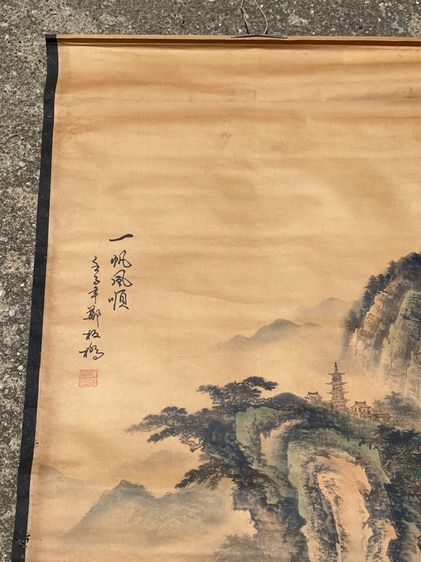 一帆風順
壬子年鄭板橋